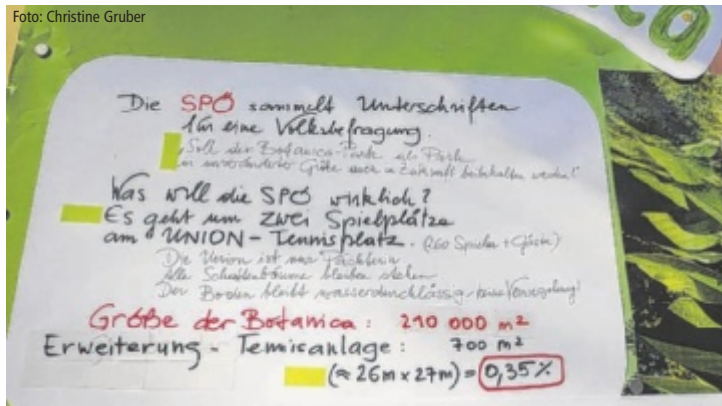 Foto: Christine Gruber
Die SPÖ sammelt Unterschriften
für eine Volksbefragung.
"Soll der Botanica-Park als Park
in unveränderter Größe auch in Zukunft beibehalten werden?"
Was will die SPÖ wirklich?
Es geht um zwei Spielplätze
am UNION-Tennisplatz. (260 Spieler + Gäste)
Die Union ist nur Pächterin
Alle Schattenbäume bleiben stehen
Der Boden bleibt wasserdurchlässig - keine Versiegelung!
Größe der Botanica: 210 000 m²
Erweiterung - Tennisanlage: 700 m²
(≈ 26m x 27m) = 0,35%